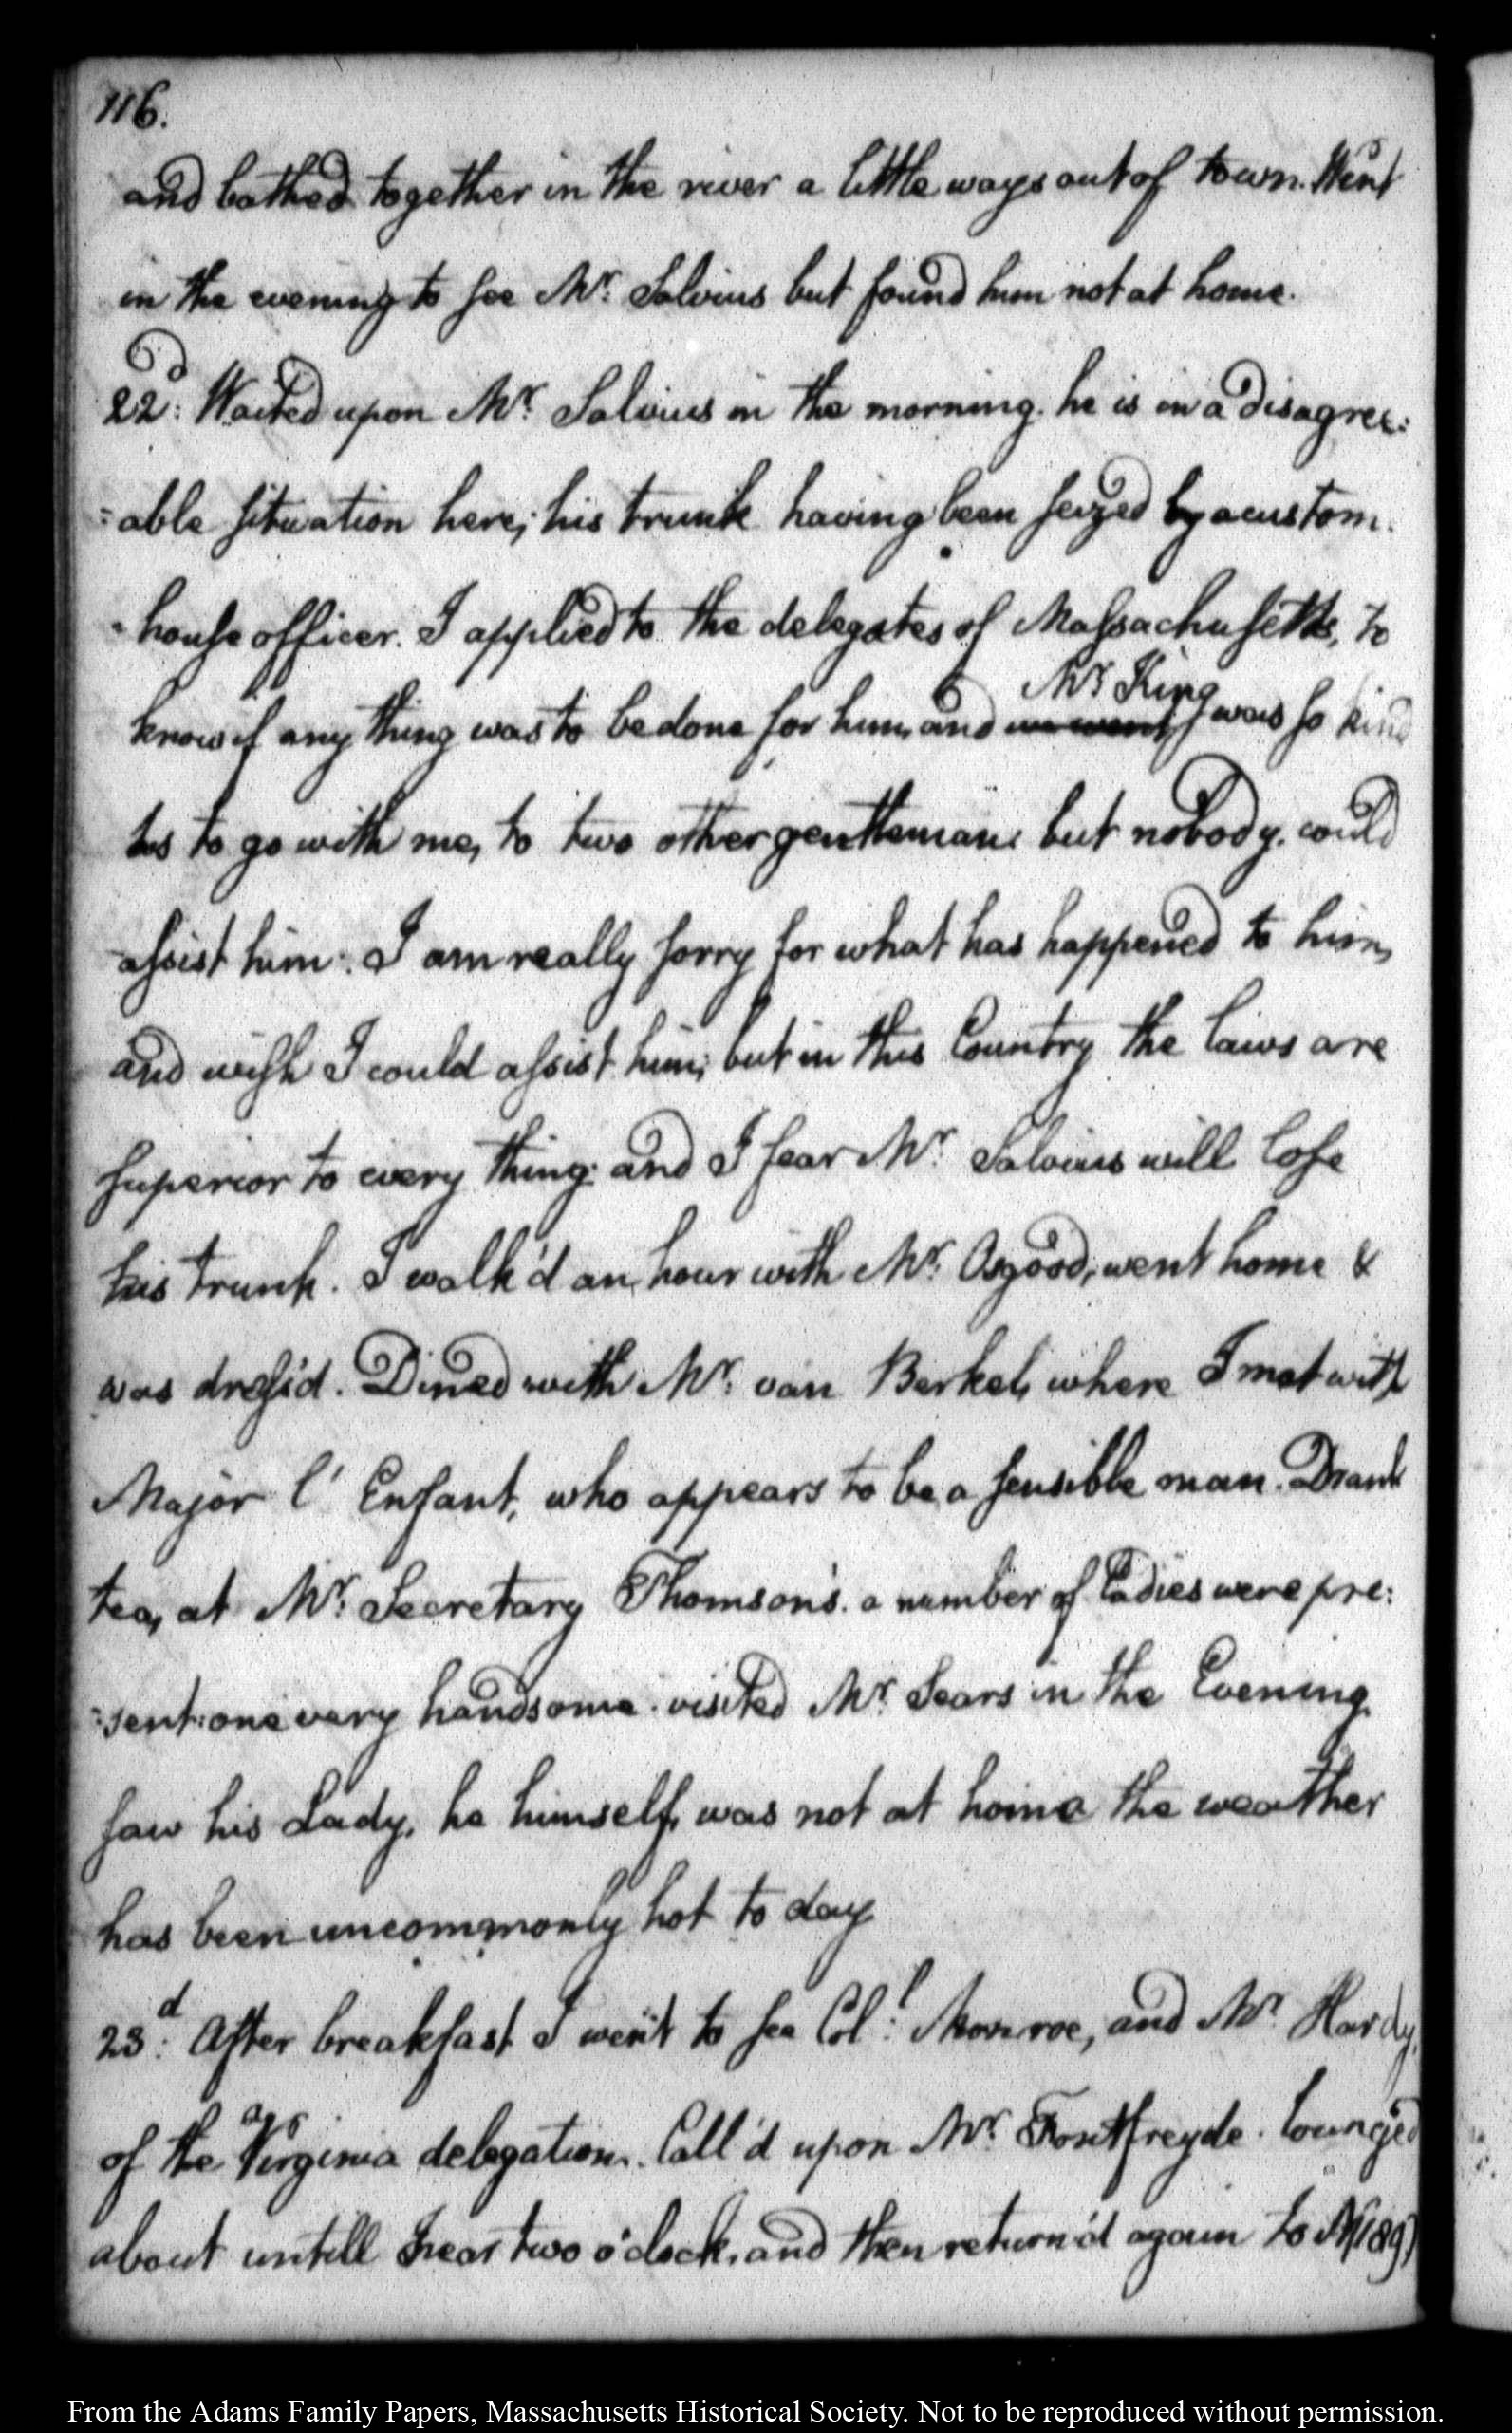 116.
and bathed together in the river a little ways out of town. Went
in the evening to see Mr: Salvius but found him not at home.
22d: Waited upon Mr. Salvius in the morning. he is in a disagree:
:able situation here; his trunk having been seized by a custom.
-house officer. I applied to the delegates of Massachusetts, to
know if any thing was to be done for him, and we went Mr King was so kind
as to go with me, to two other gentlemen: but nobody could
assist him: I am really sorry for what has happened to him,
and wish I could assist him; but in this Country the laws are
superior to every thing: and I fear Mr. Salvius will lose
his trunk. I walk'd an hour with Mr: Osgood, went home &
was dress'd. Dined with Mr: van Berkel, where I met with
Major l' Enfant, who appears to be a sensible man. Drank
tea, at Mr: Secretary Thomson's. a number of Ladies were pre:
:sent: one very handsome. visited Mr. Sears in the Evening.
saw his Lady, he himself, was not at home the weather
has been uncommonly hot to day
23d: After breakfast I went to see Coll: Monroe, and Mr. Hardy,
of the Virginia delegation. Call'd upon Mr. Fontfreyde. lounged
about untill near two o'clock, and then return'd again to
From the Adams Family Papers, Massachusetts Historical Society. Not to be reproduced without permission.